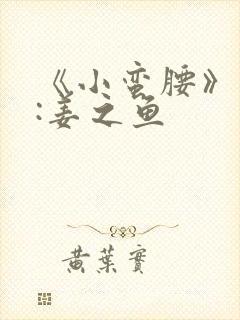 《小蛮腰》
:姜之鱼
黄葉實